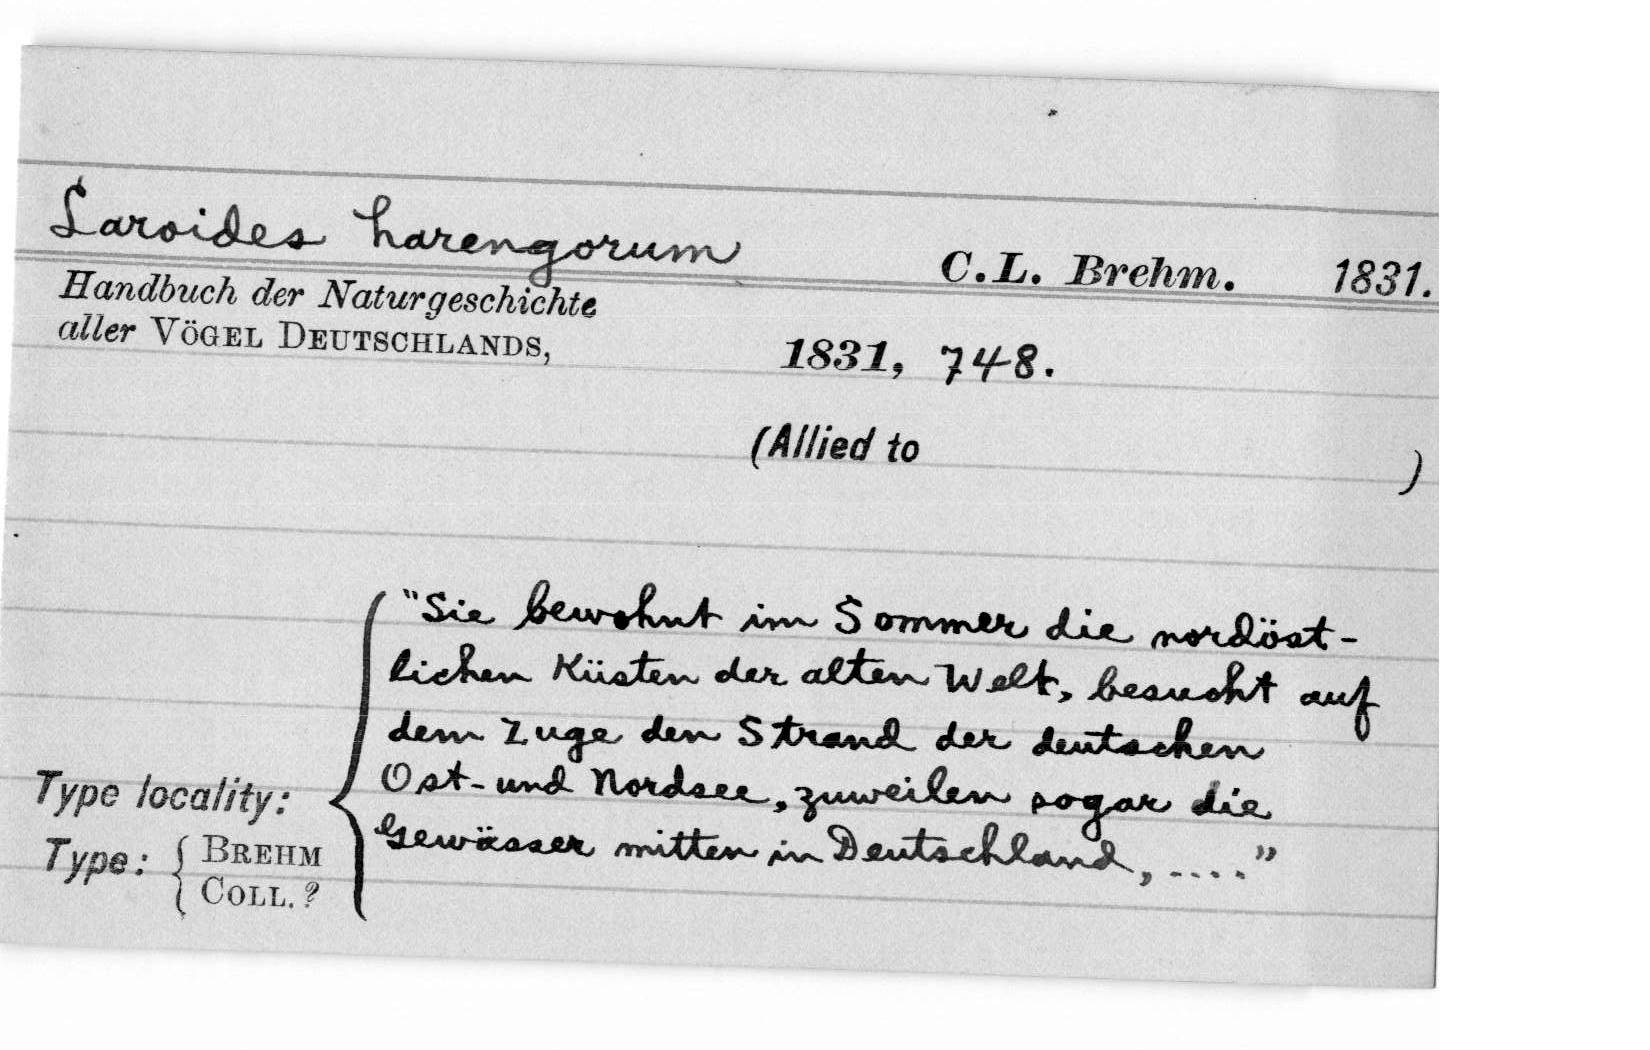 Laroides harengorum C.L. Brehm. 1831.
Handbuch der Naturgeschichte
aller VÖGEL DEUTSCHLANDS, 1831, 748.
(Allied to )
"Sie bewohnt im Sommer die nordöst-
lichen Küsten der alten Welt, besucht auf
dem Zuge den Strand der deutschen
Ost- und Nordsee, zuweilen sogar die
Gewässer mitten in Deutschland, ...."
Type locality:
Type: { BREHM
COLL. ?